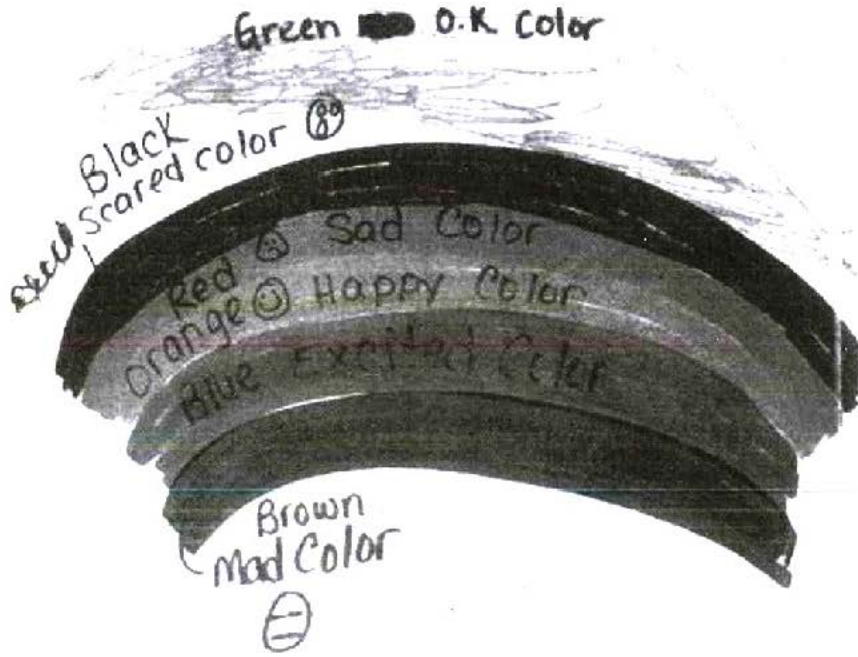 Green O.K color
Black
scared color
Red Sad Color
Orange Happy Color
Blue Excited Color
Brown
Mad Color